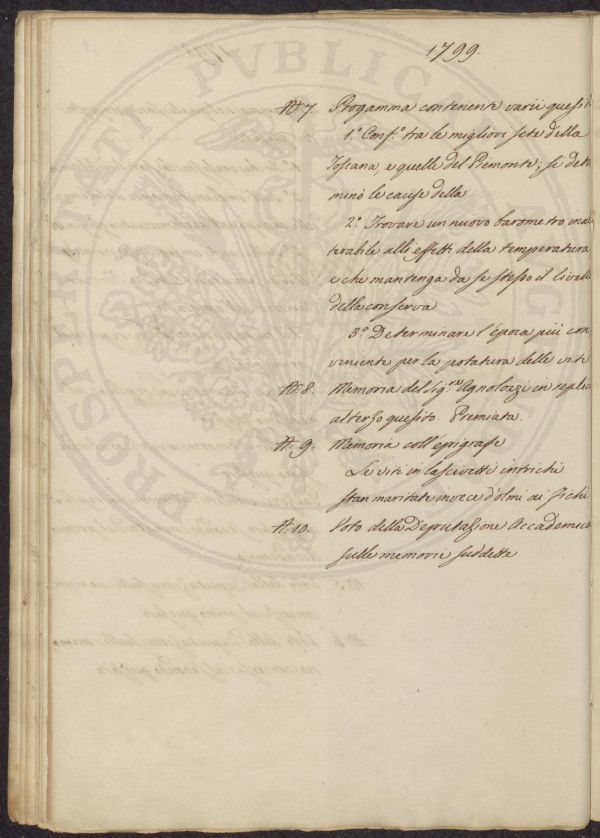 1799.
N. 7 Progamma contenente varii quesiti
1.° Conf.° tra le migliori sete della
Toscana, e quelle del Piemonte; se dete
minò le cause della
2.° Trovare un nuovo barometro inal
terabile alli effetti della temperatura
e che mantenga da se stesso il livell
della conserva
3.° Determinare l'época più con
veniente per la potatura delle viti
N. 8. Memoria del Sig.re Agnolozzi in replic
al terzo quesito. Premiata.
N. 9. Memoria coll'epigrafe
Le viti in lascivetti intrichi
Stan maritate invece d'olmi ai fichi
N. 10. Voto della Deputazione Accademic
sulle memorie suddette
PROSPERITATI PVBLICAE